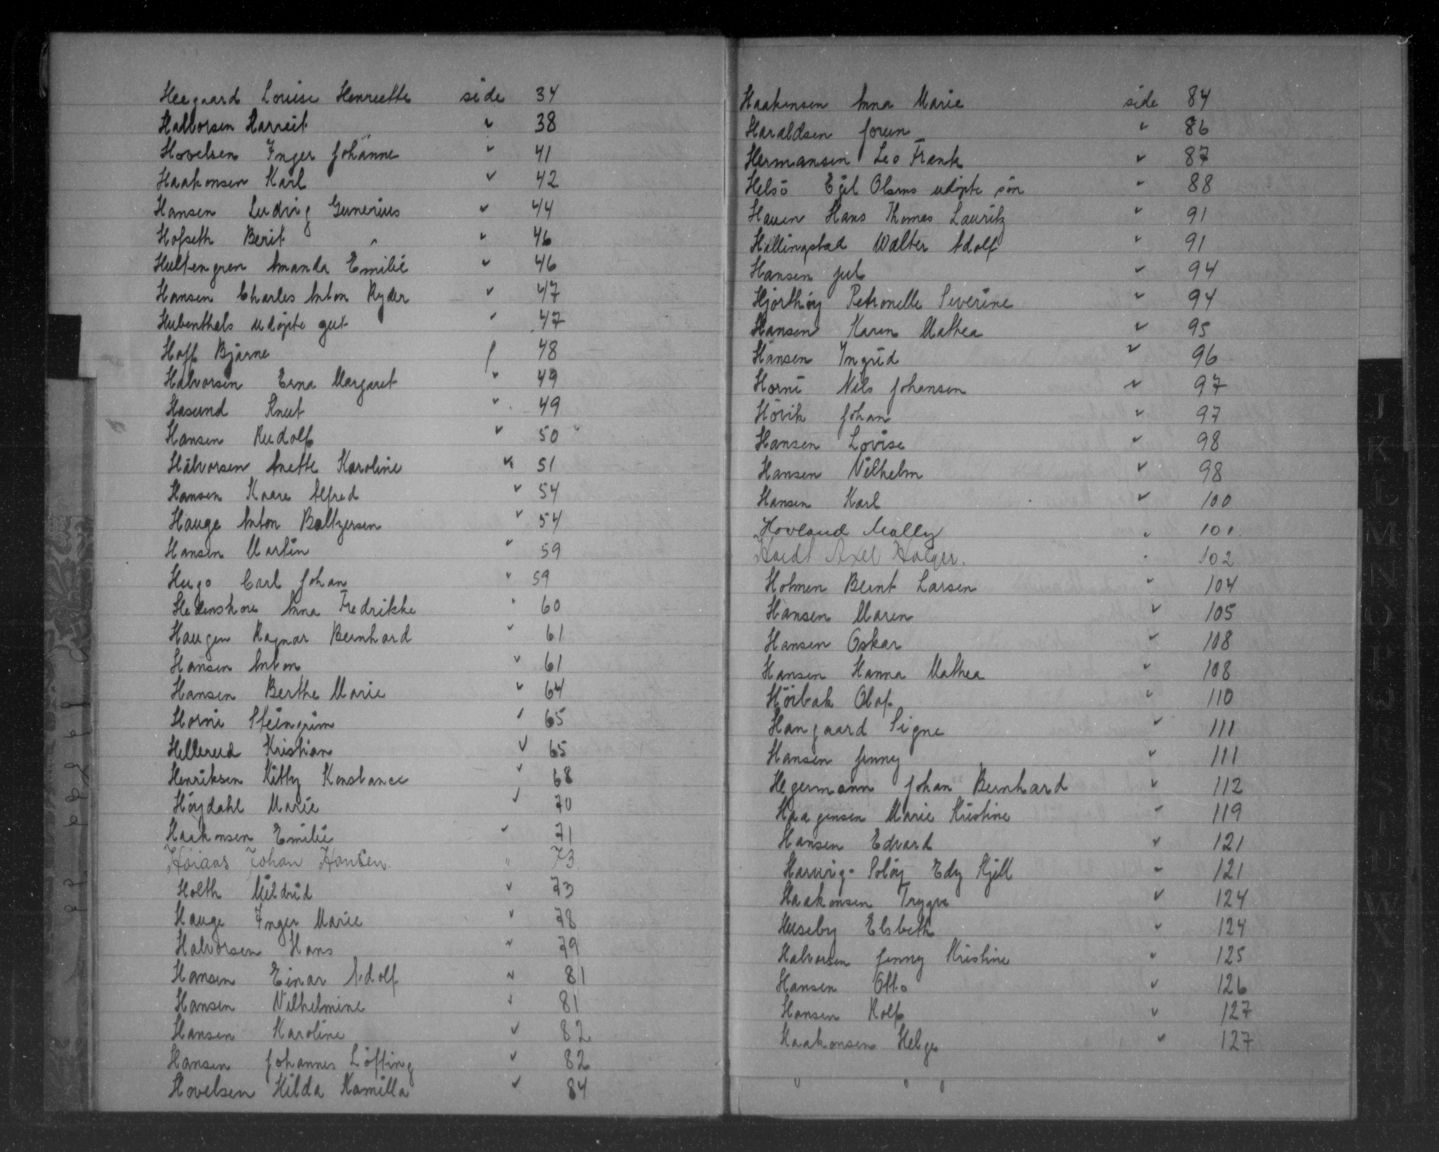 Heegaard Louise Henriette side 34
Halvorsen Harreit " 38
Hovelsen Inger Johanne " 41
Haakonsen Karl " 42
Hansen Ludvig Gunerius " 44
Hofseth Berit " 46
Hultengren Amanda Emilie " 46
Hansen Charles Anton Ryder " 47
Hubenthals udøpte gut " 47
Hoff Bjarne " 48
Halvorsen Erna Margaret " 49
Hasund Knut " 49
Hansen Rudolf " 50
Halvorsen Anette Karoline " 51
Hansen Kaare Alfred " 54
Hauge Anton Baltzersen " 54
Hansen Martin " 59
Hugo Carl Johan " 59
Anna Fredrikke " 60
Haugen Ragnar Bernhard " 61
Hansen Anton " 61
Hansen Berthe Marie " 64
Horni Steingrim " 65
Hellerud Kristian " 65
Henriksen Kitty Konstance " 68
Høydahl Marie " 70
Haakonsen Emilie " 71
Høiaas Johan Hansen " 73
Holth Mildrid " 73
Hauge Inger Marie " 78
Halvorsen Hans " 79
Hansen Einar Adolf " 81
Hansen Vilhelmine " 81
Hansen Karoline " 82
Hansen Johannes Löfting " 82
Hovelsen Hilda Kamilla " 84
Haakensen Anna Marie side 84
Haraldsen Jorun " 86
Hermansen Leo Frank " 87
Helsö Egil Olsens udøpte sön " 88
Hauen Hans Thomas Lauritz " 91
Hellingstad Walter Adolf " 91
Hansen Jul " 94
Hjorthøy Petronelle Severine " 94
Hansen Karen Mathea " 95
Hansen Ingrid " 96
Horni Nils Johansen " 97
Hövik Johan " 97
Hansen Lovise " 98
Hansen Vilhelm " 98
Hansen Karl " 100
Hovland Mally " 101
Axel Holger. " 102
Holmen Bernt Larsen " 104
Hansen Maren " 105
Hansen Oskar " 108
Hansen Hanna Mathea " 108
Höibak Olaf " 110
Hangaard Signe " 111
Hansen Jenny " 111
Hegermann Johan Bernhard " 112
Haagensen Marie Kristine " 119
Hansen Edvard " 121
Harwig-Soløy Edy Kjell " 121
Haakonsen Trygve " 124
Huseby Elsbeth " 124
Halvorsen Jenny Kristine " 125
Hansen Otto " 126
Hansen Rolf " 127
Haakonsen Helge " 127
J
K
L
M
N
O
P